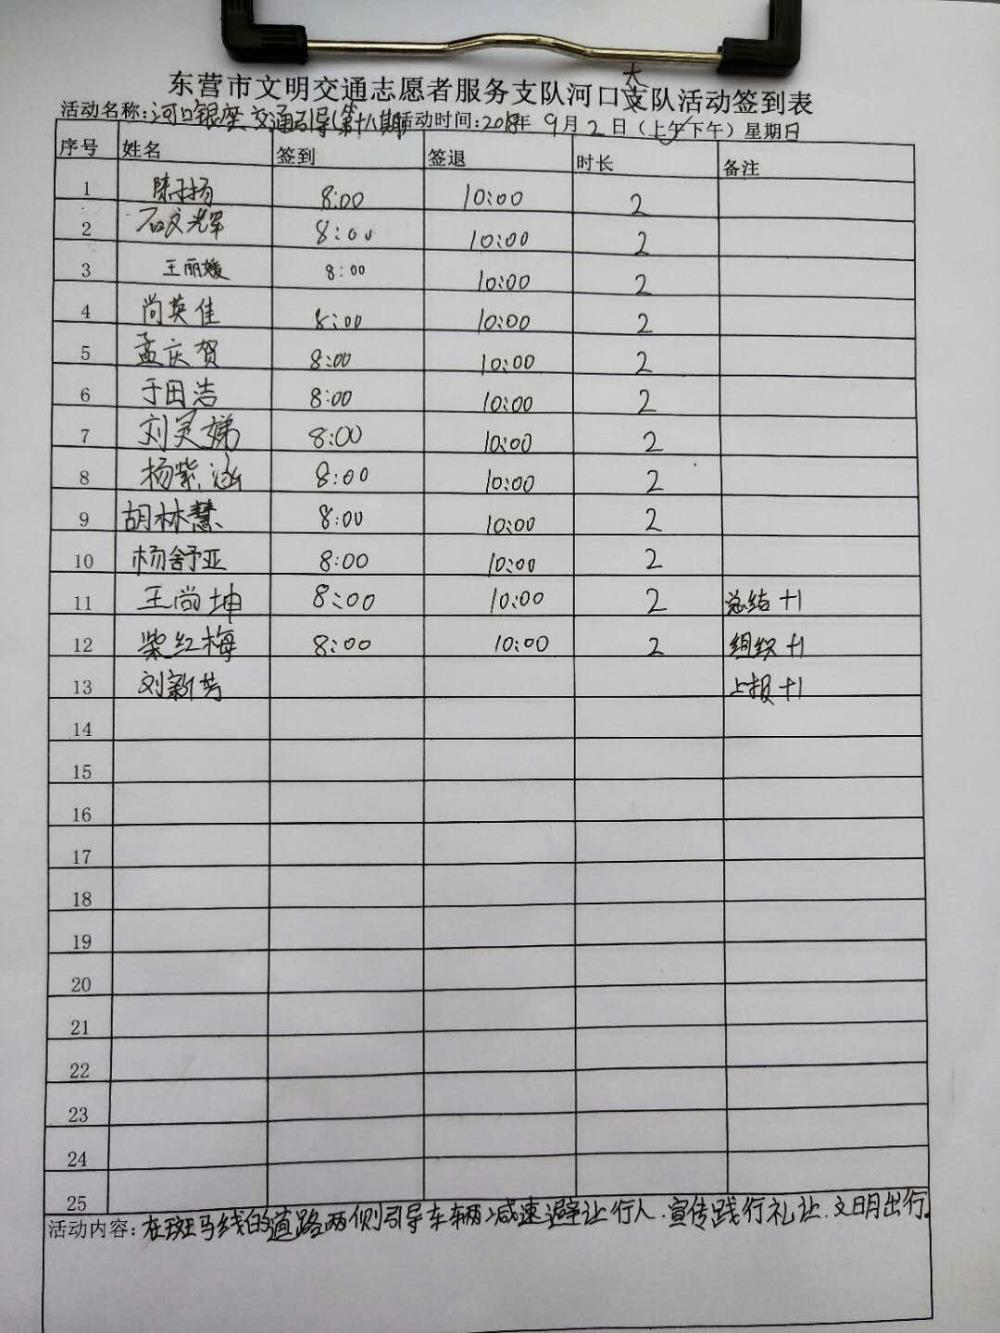 东营市文明交通志愿者服务支队河口大队活动签到表
活动名称:河口银座交通引导(第十八期) 活动时间:2018年 9月 2日 (上午/下午) 星期日
序号 姓名 签到 签退 时长 备注
1 陈扬 8:00 10:00 2
2 石文光军 8:00 10:00 2
3 王丽媛 8:00 10:00 2
4 尚英佳 8:00 10:00 2
5 孟庆贺 8:00 10:00 2
6 于田浩 8:00 10:00 2
7 刘灵娣 8:00 10:00 2
8 杨紫涵 8:00 10:00 2
9 胡林慧 8:00 10:00 2
10 杨舒亚 8:00 10:00 2
11 王尚坤 8:00 10:00 2 总结+1
12 柴红梅 8:00 10:00 2 组织+1
13 刘新芳 上报+1
14
15
16
17
18
19
20
21
22
23
24
25
活动内容:在斑马线的道路两侧引导车辆减速避让行人.宣传践行礼让.文明出行.